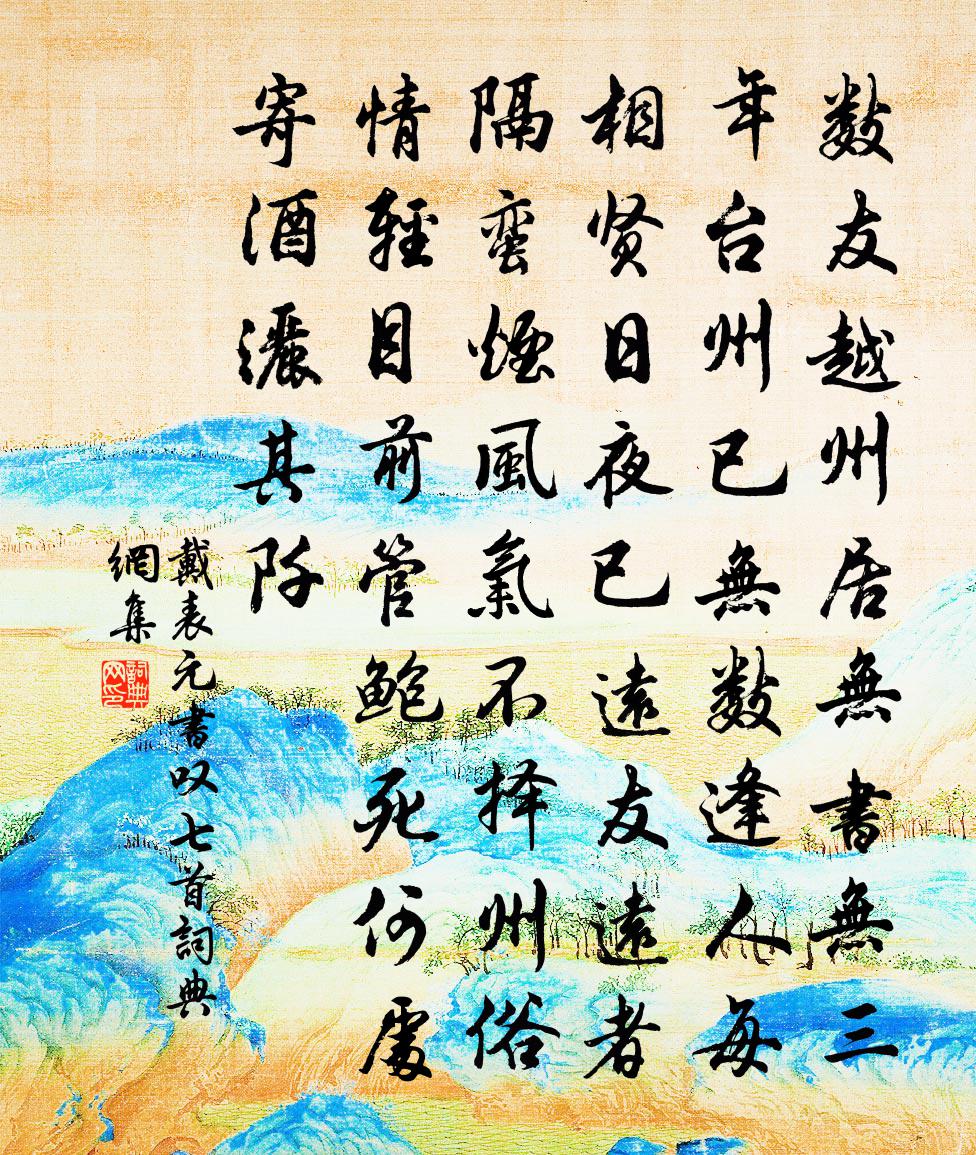 数友越州居無書無三
年台州已無数逢人每
相贤日夜已遠友遠者
隔蛮煙風氣不择州俗
情輕目前管鲍死何處
寄酒灑其阡
戴表元書叹七首詞典
網集
詞典
网印